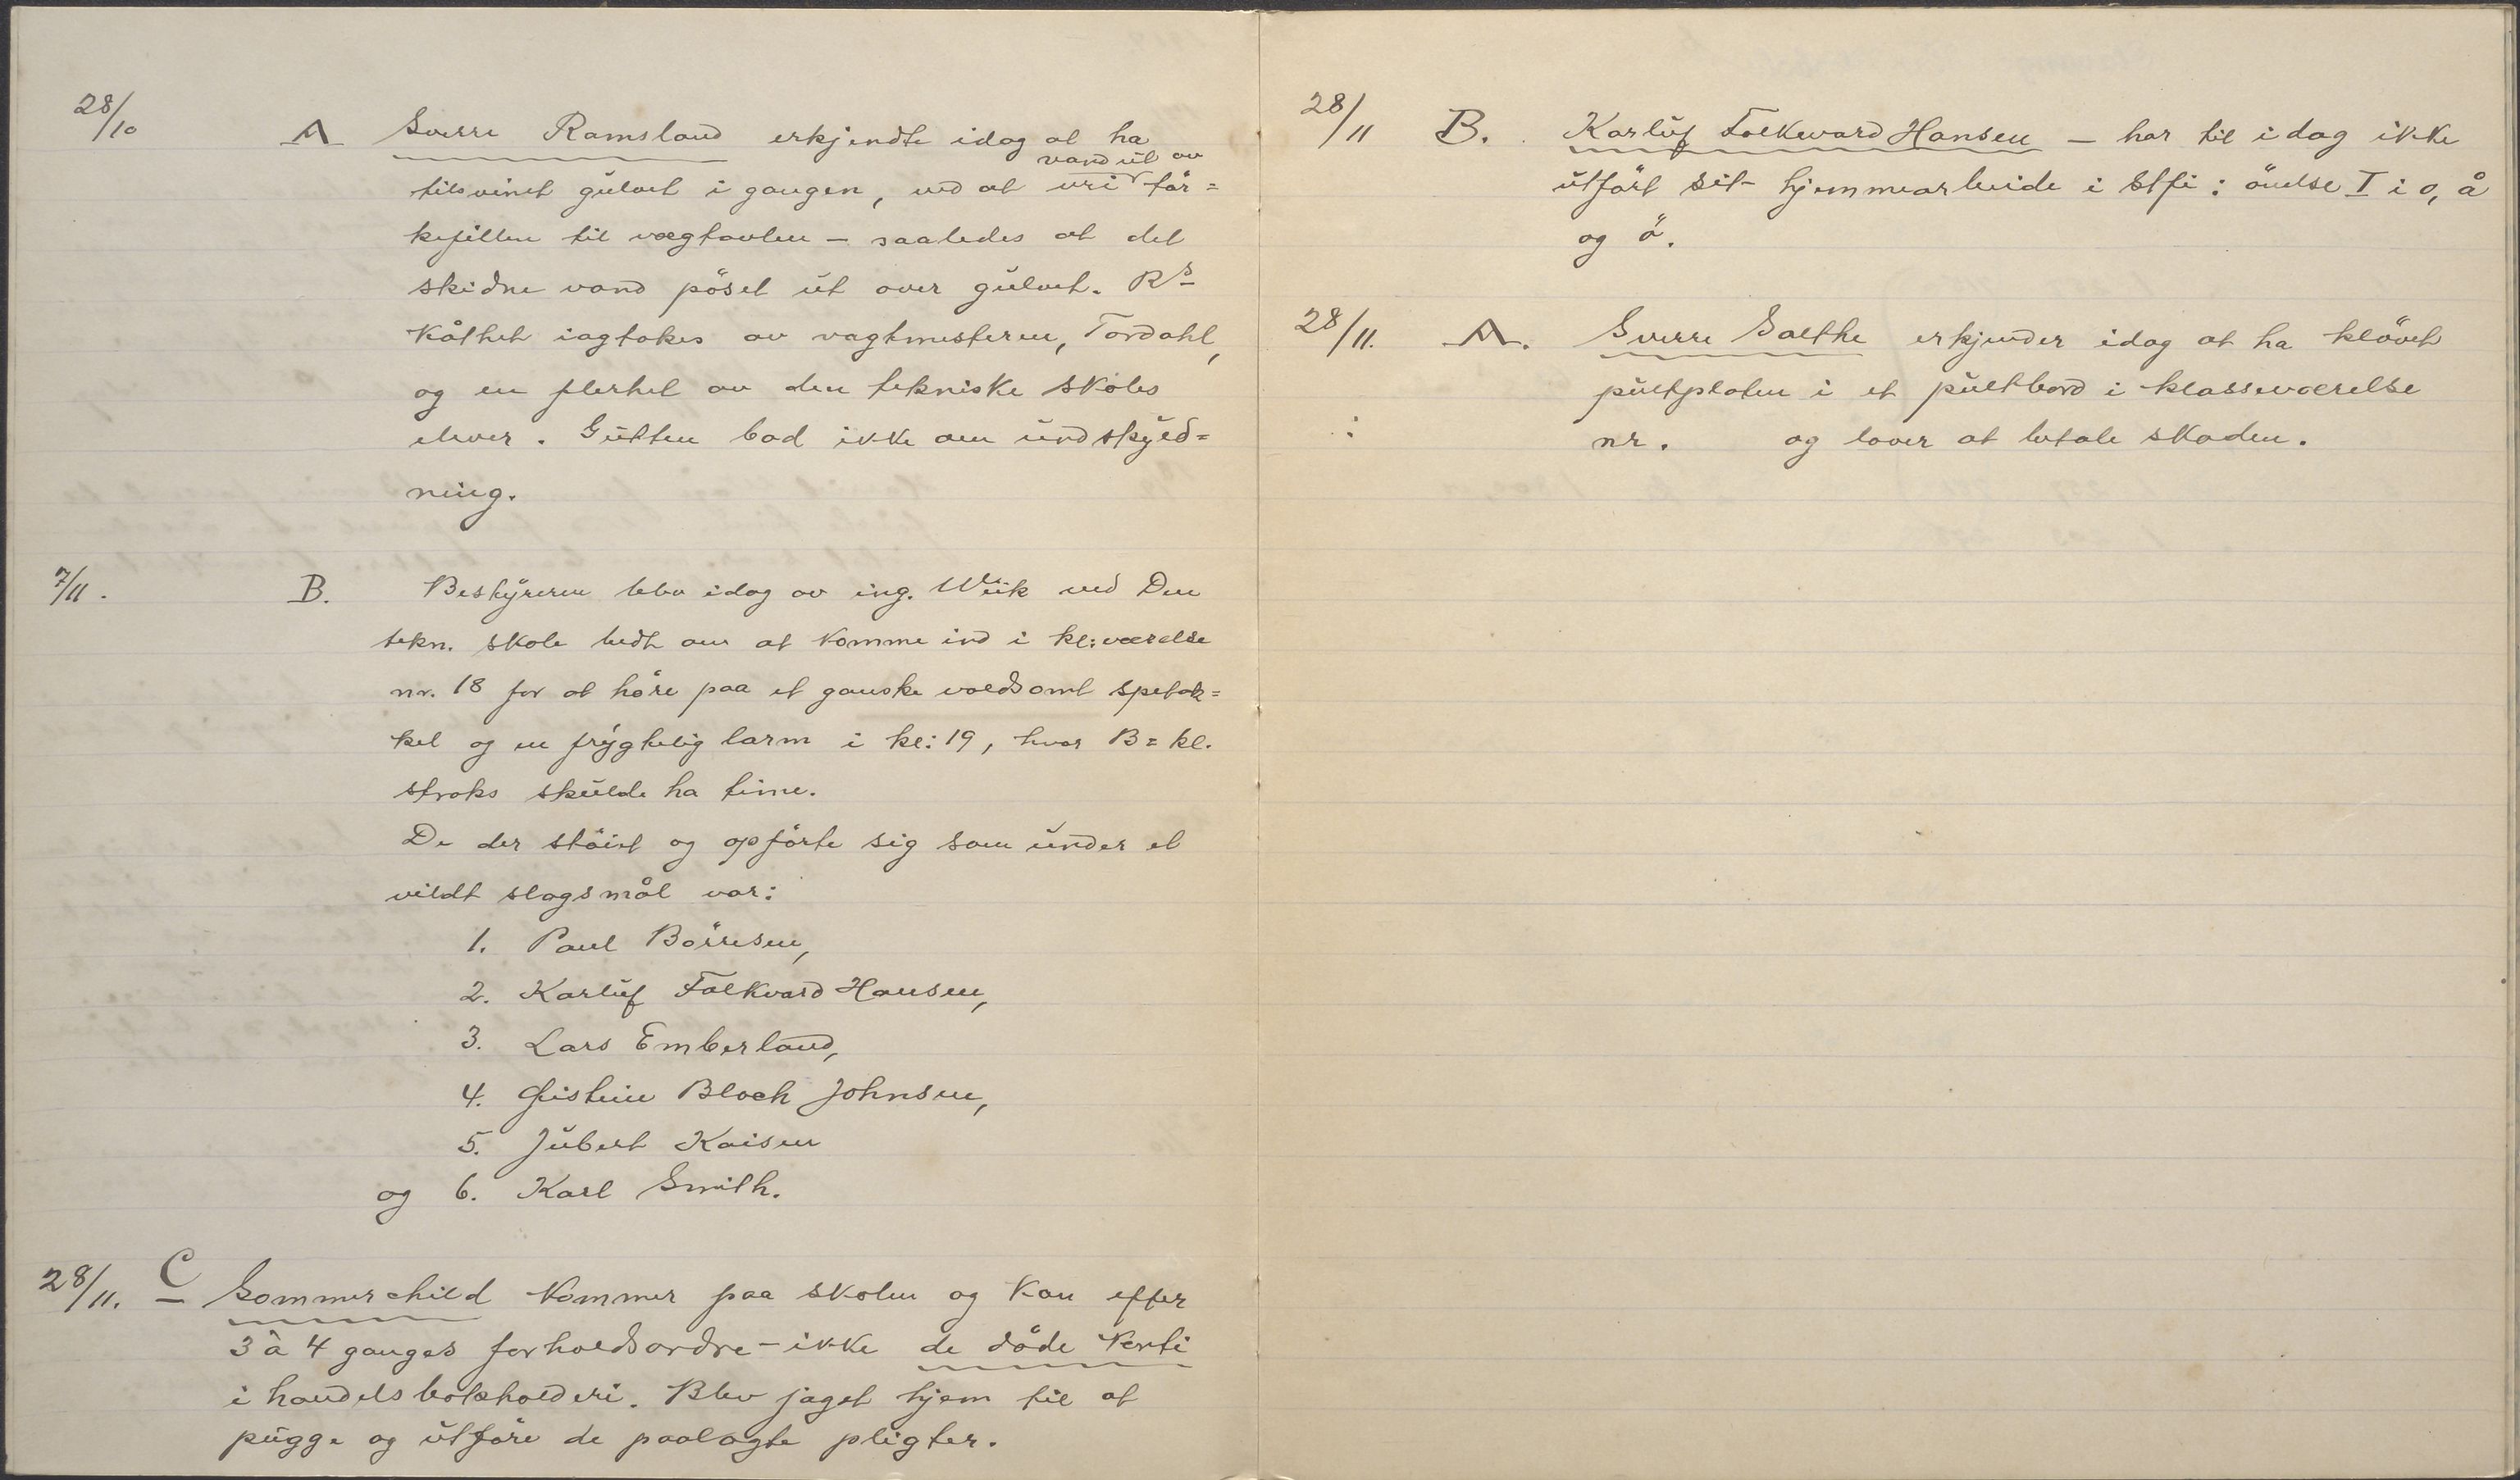 28/10 A Sverre Ramsland erkjendte idag at ha
tilsvinet gulvet i gangen, ved at vri vand ut av tör=
kefillen til vægtavlen – saaledes at det
skidne vand pöset ut over gulvet. Rs
kåthet iagtokes av vagtmesteren, Tordahl,
og en flerhet av den tekniske skoles
elever. Gutten bad ikke om undskyld=
ning.
7/11. B. Bestyreren blev idag av ing. Wiik ved Den
tekn. skole bedt om at komme ind i kl:værelse
nr. 18 for at höre paa et ganske voldsomt spetak=
kel og en frygtelig larm i kl: 19, hvor B=kl.
straks skulde ha time.
De der stöiet og opförte sig som under et
vildt slagsmål var:
1. Paul Börresen,
2. Karluf Folkvard Hansen,
3. Lars Emberland,
4. Øistein Bloch Johnsen,
5. Jubert Kaisen
og 6. Karl Smith.
28/11. C Sommerschild kommer paa skolen og kan efter
3 à 4 ganges forholdsordre – ikke de döde konti
i handelsbokholderi. Blev jaget hjem til at
pugge og utföre de paalagte pligter.
28/11 B. Karluf Folkvard Hansen – har til idag ikke
utfört sit hjemmearbeide i Stfi: övelse I i o, å
og ö.
28/11. A. Sverre Salthe erkjender idag at ha klövet
pultplaten i et pultbord i klasseværelse
nr. og lover at betale skaden.